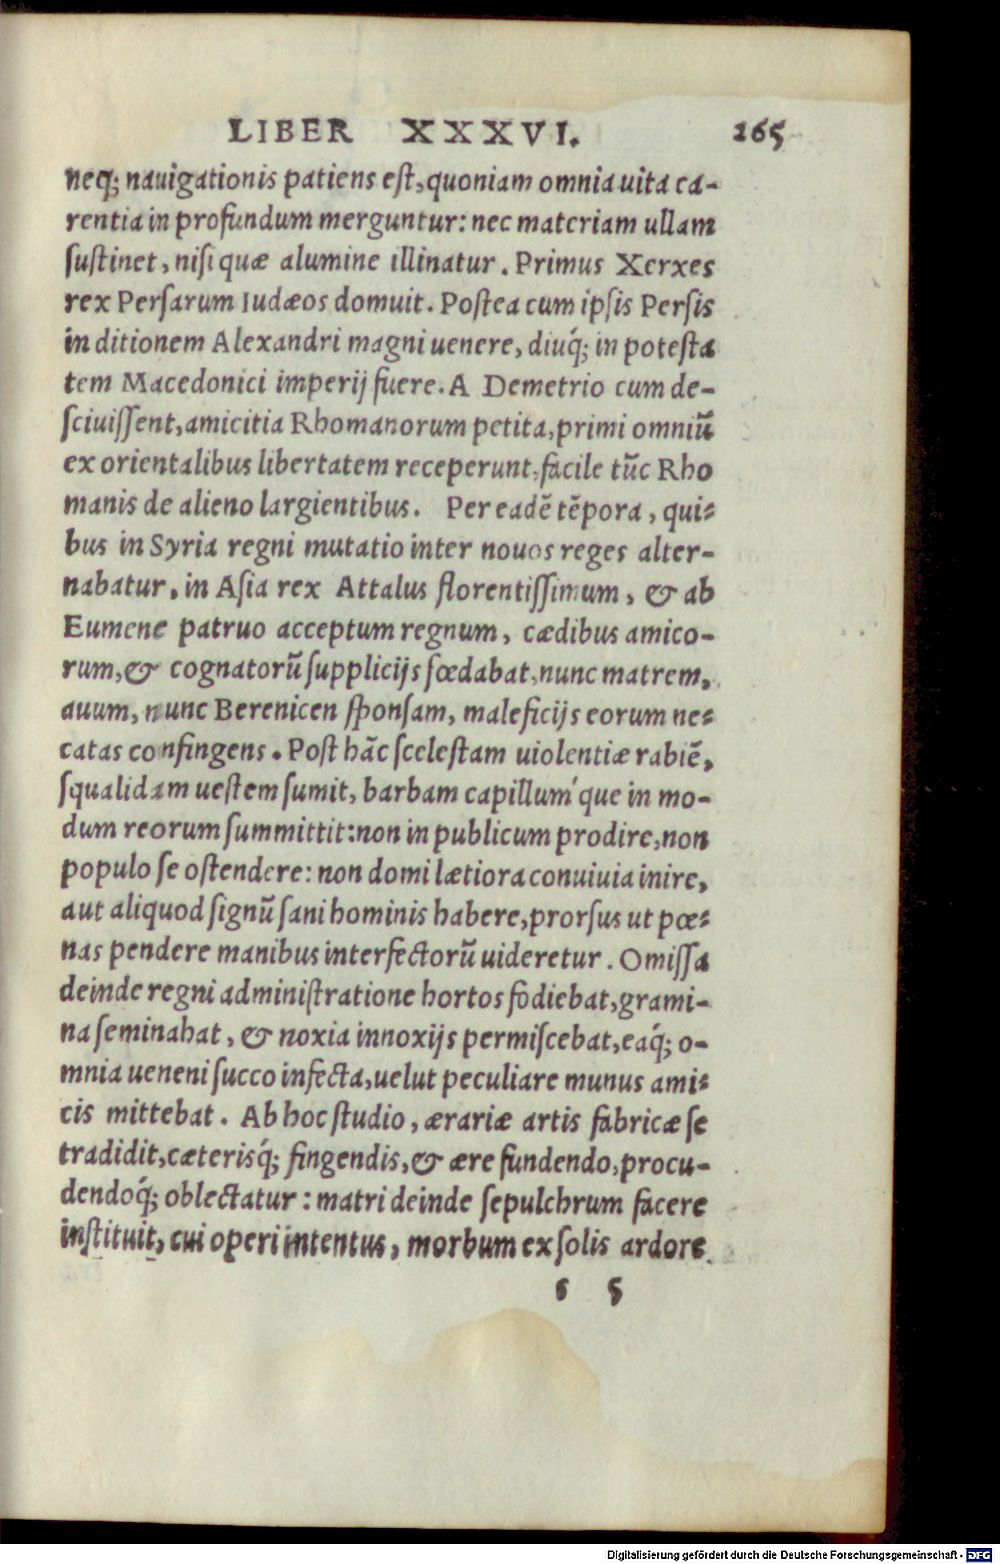 LIBER XXXVI. 265
neq; nauigationis patiens est, quoniam omnia uita ca-
rentia in profundum merguntur: nec materiam ullam
sustinet, nisi quæ alumine illinatur. Primus Xerxes
rex Persarum Iudæos domuit. Postea cum ipsis Persis
in ditionem Alexandri magni uenere, diuq́; in potesta
tem Macedonici imperij fuere. A Demetrio cum de-
sciuissent, amicitia Rhomanorum petita, primi omniū
ex orientalibus libertatem receperunt, facile tūc Rho
manis de alieno largientibus. Per eadē tēpora, qui-
bus in Syria regni mutatio inter nouos reges alter-
nabatur, in Asia rex Attalus florentissimum, & ab
Eumene patruo acceptum regnum, cædibus amico-
rum, & cognatorū supplicijs fœdabat, nunc matrem,
auum, nunc Berenicen sponsam, maleficijs eorum ne-
catas confingens. Post hāc scelestam uiolentiæ rabiē,
squalidam uestem sumit, barbam capillum´que in mo-
dum reorum summittit: non in publicum prodire, non
populo se ostendere: non domi lætiora conuiuia inire,
aut aliquod signū sani hominis habere, prorsus ut pœ-
nas pendere manibus interfectorū uideretur. Omissa
deinde regni administratione hortos fodiebat, grami-
na seminabat, & noxia innoxijs permiscebat, eaq́; o-
mnia ueneni succo infecta, uelut peculiare munus ami-
cis mittebat. Ab hoc studio, ærariæ artis fabricæ se
tradidit, cæterisq́; fingendis, & ære fundendo, procu-
dendoq́; oblectatur: matri deinde sepulchrum facere
instituit, cui operi intentus, morbum ex solis ardore
s 5
Digitalisierung gefördert durch die Deutsche Forschungsgemeinschaft - DFG